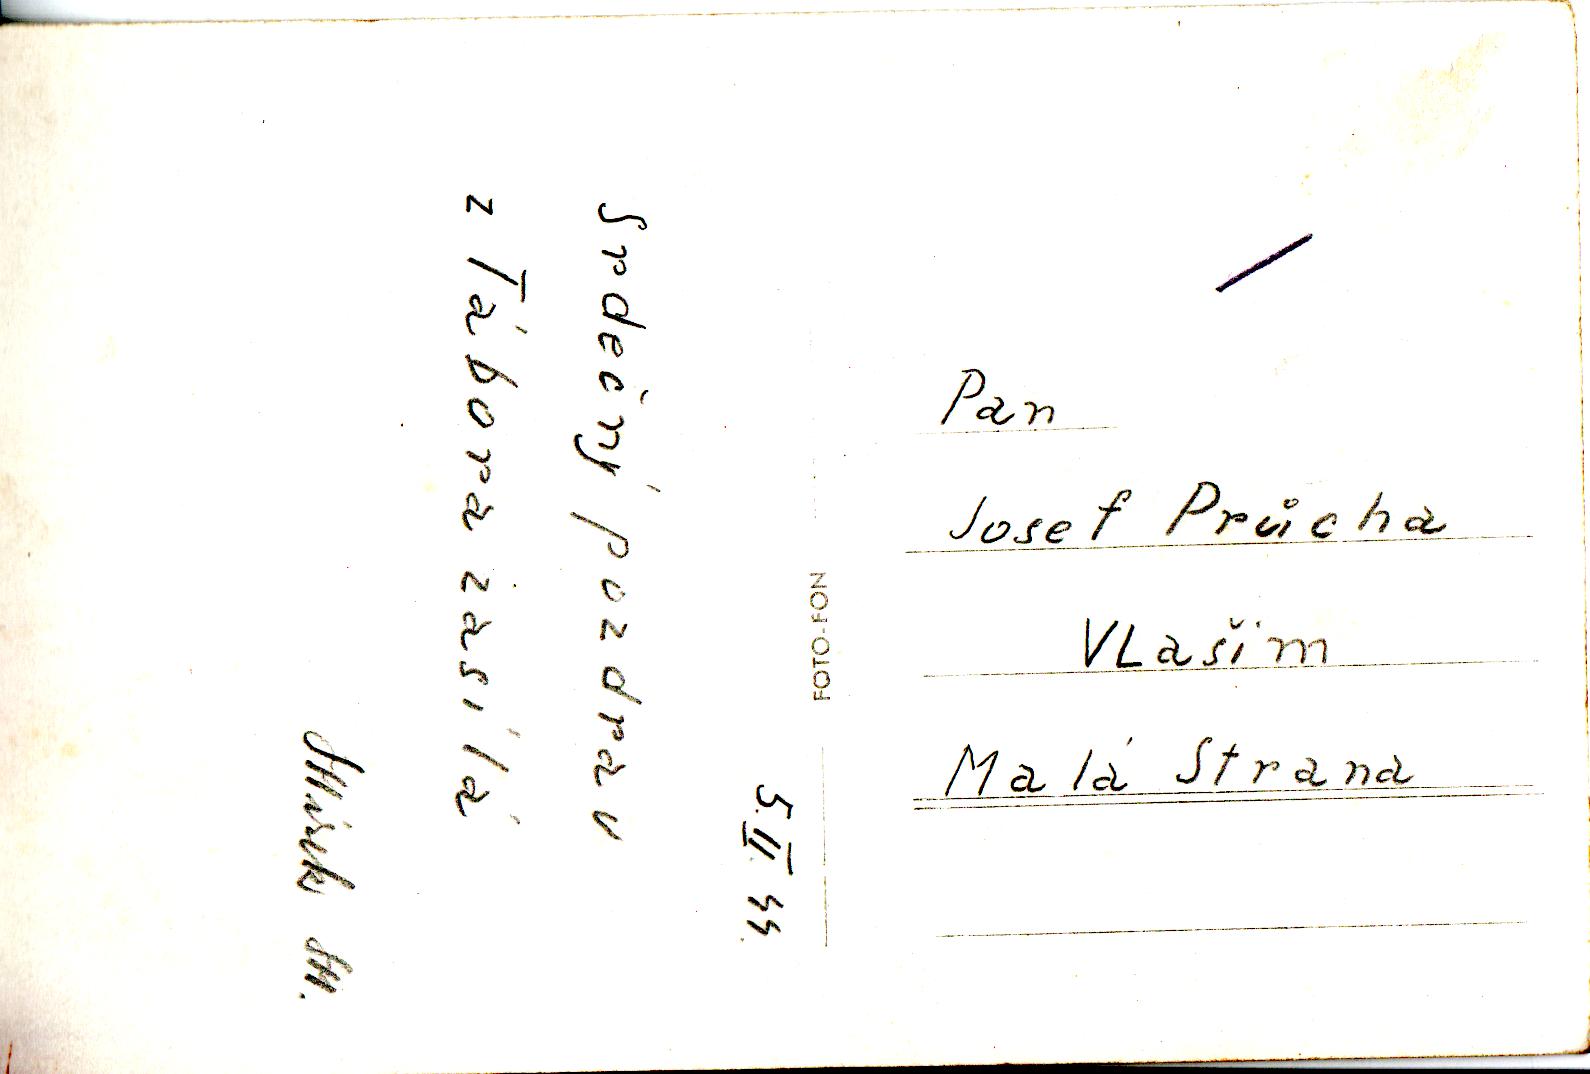 5.II.44.
Srdečný pozdrav
z Tábora zasílá
FOTO-FON
Pan
Josef Průcha
VLašim
Malá Strana